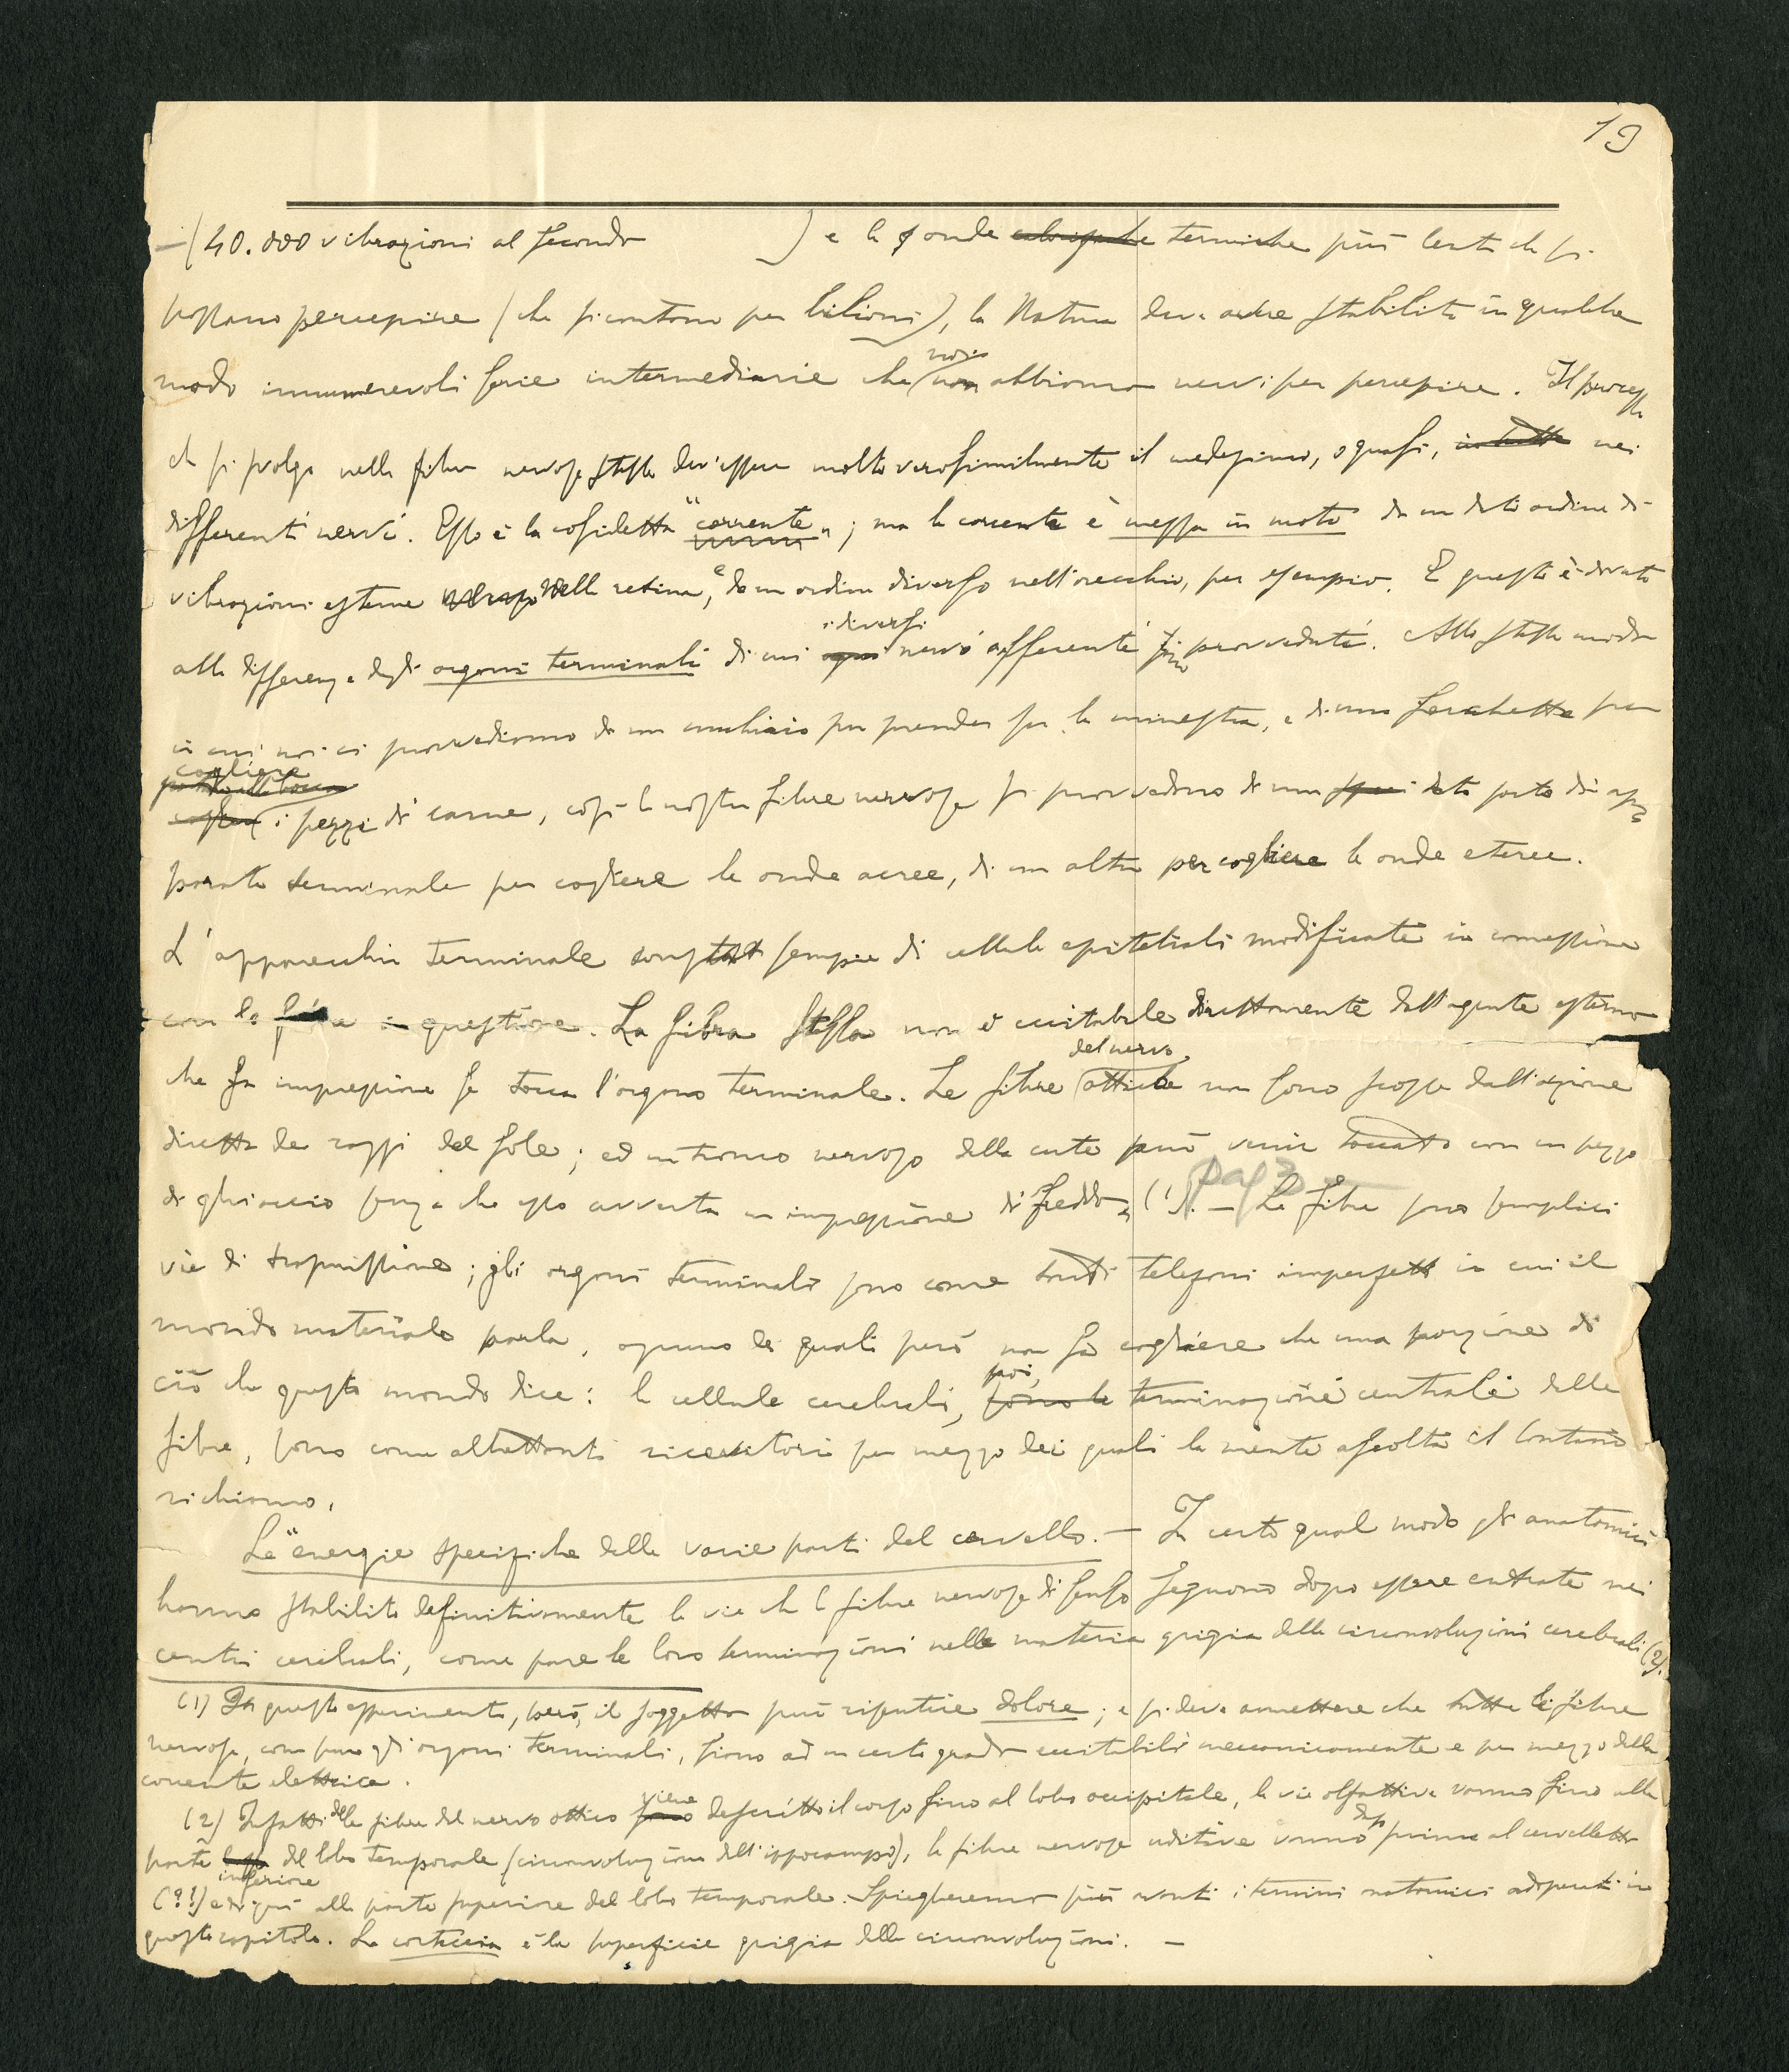 19
(40.000 vibrazioni al secondo ) e le onde calorifiche termiche più lente che si
possano percepire (che si contano per bilioni), la Natura deve avere stabilito in qualche
modo innumerevoli serie intermediarie che noi non abbiamo nervi per percepire. Il processo
che si svolge nelle fibre nervose stesse dev'essere molto verosimilmente il medesimo, o quasi, in tutti nei
differenti nervi. Esso è la cosidetta "corrente"; ma la corrente è messa in moto da un dato ordine di
vibrazioni esterne nella retina, e da un ordine diverso nell'orecchio, per esempio. E questo è dovuto
alla differenza degli organi terminali di cui ogni i diversi nervi afferenti sono provveduti. Allo stesso modo
in cui noi ci provvediamo di un cucchiaio per prender su la minestra, e di una forchetta per
cogliere
i pezzi di carne, così le nostre fibre nervose si provvedono di una data sorta di ap-
parato terminale per cogliere le onde aeree, di un altro per cogliere le onde eteree.
L'apparecchio terminale consta sempre di cellule epiteliali modificate in connessione
con la fibra in questione. La fibra stessa non è eccitabile direttamente dall'agente esterno
che fa impressione se tocca l'organo terminale. Le fibre del nervo ottiche non sono scosse dall'azione
diretta dei raggi del sole; ed un tronco nervoso della cute può venir toccato con un pezzo
di ghiaccio senza che esso avverta un'impressione di freddo (1). pag 3 — Le fibre sono semplici
vie di trasmissione; gli organi terminali sono come tanti telefoni imperfetti in cui il
mondo materiale parla, ognuno dei quali però non fa cogliere che una porzione di
ciò che questo mondo dice: le cellule cerebrali, poi, sono le terminazioni centrali delle
fibre, sono come altrettanti ricevitori per mezzo dei quali la mente ascolta il lontano
richiamo.
Le "energie specifiche delle varie parti del cervello. — In certo qual modo gli anatomici
hanno stabilito definitivamente le vie che le fibre nervose di senso seguono dopo essere entrate nei
centri cerebrali, come pure le loro terminazioni nella materia grigia delle circonvoluzioni cerebrali (2).
(1) In questo esperimento, però, il soggetto può risentire dolore; e si deve ammettere che tutte le fibre
nervose, come pure gli organi terminali, siano ad un certo grado eccitabili meccanicamente e per mezzo della
corrente elettrica.
(2) Infatti delle fibre del nervo ottico sono viene descritto il corso fino al lobo occipitale, le vie olfattive vanno fino alla
parte inferiore del lobo temporale (circonvoluzione dell'ippocampo), le fibre nervose uditive vanno dopo prima al cervelletto
(?!) e di qui alla parte superiore del lobo temporale. Spiegheremo più avanti i termini anatomici adoperati in
questo capitolo. La corteccia è la superficie grigia delle circonvoluzioni. —